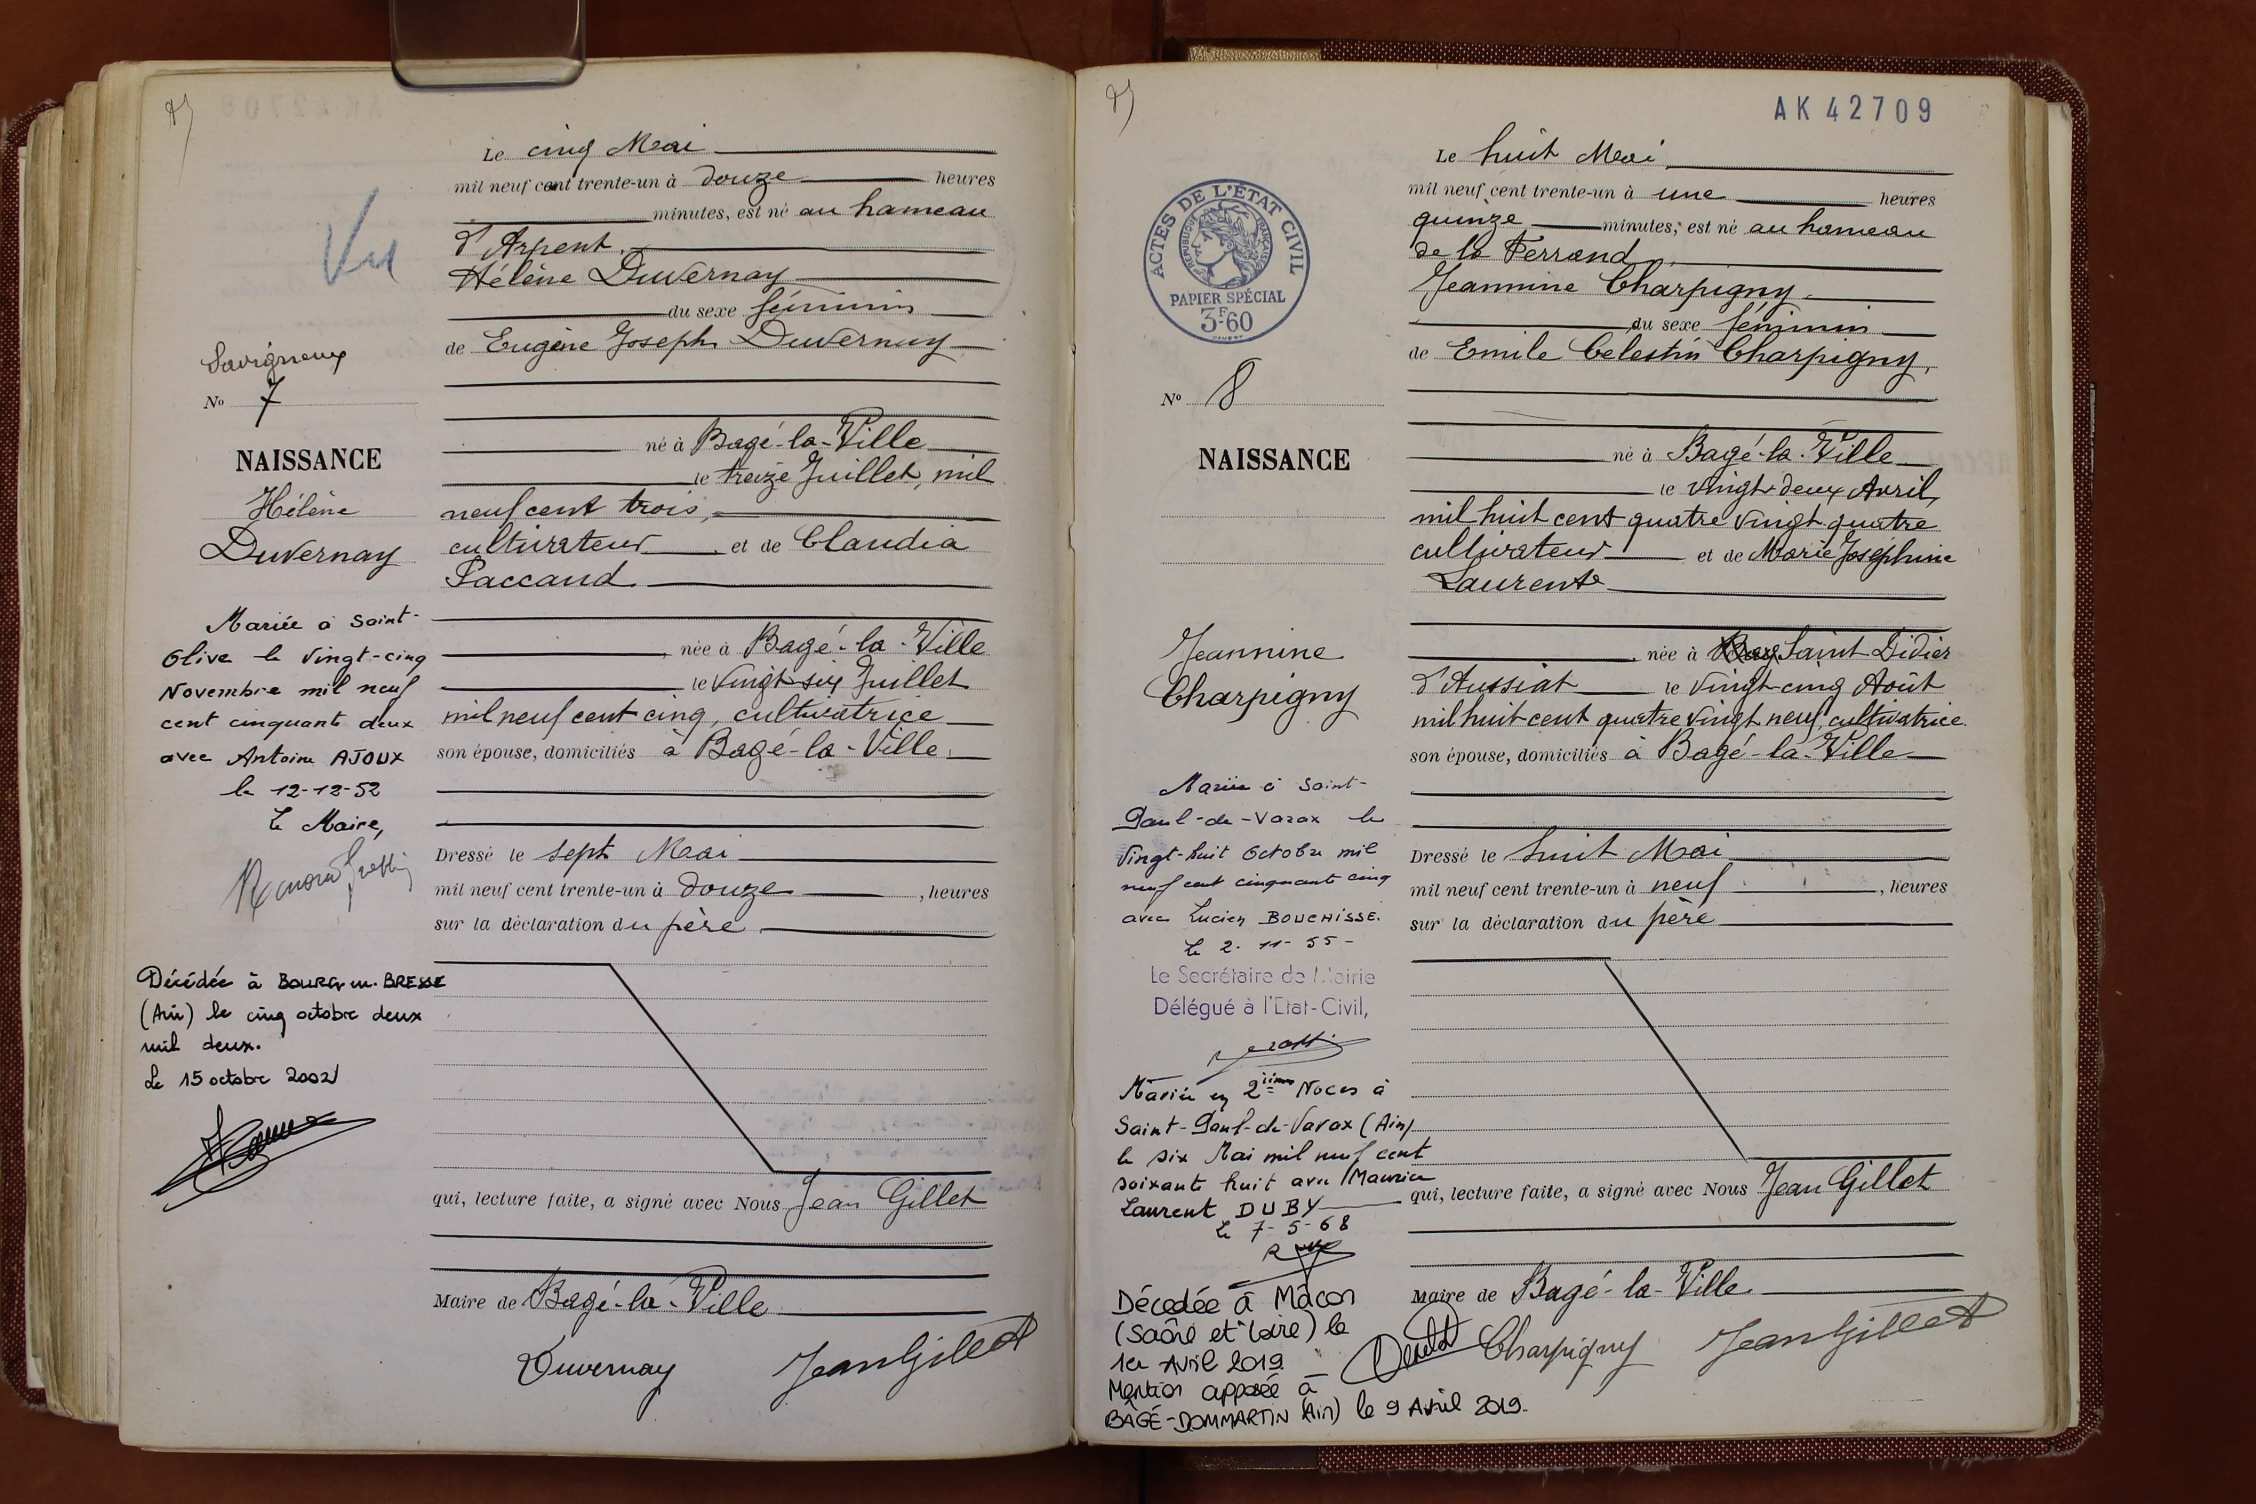 Le cinq Mai
mil neuf cent trente-un à douze heures
minutes, est né au hameau
d'Arpent
Hélène Duvernay
du sexe féminin
de Eugène Joseph Duvernay
né à Bagé-la-Ville
le treize Juillet, mil
neuf cent trois,
cultivateur et de Claudia
Paccaud
née à Bagé-la-Ville
le vingt-six Juillet
mil neuf cent cinq, cultivatrice
son épouse, domiciliés à Bagé-la-Ville
Dressé le sept Mai
mil neuf cent trente-un à douze, heures
sur la déclaration du père
qui, lecture faite, a signé avec Nous Jean Gillet
Maire de Bagé-la-Ville
Duvernay Jean Gillet
Vu
Savigneux
No 7
NAISSANCE
Hélène
Duvernay
Mariée à Saint-
Olive le vingt-cinq
Novembre mil neuf
cent cinquante deux
avec Antoine AJOUX
le 12-12-52
Le Maire,
Décédée à BOURG-en-BRESSE
(Ain) le cinq octobre deux
mil deux.
Le 15 octobre 2002
AK 42709
Le huit Mai
mil neuf cent trente-un à une heures
quinze minutes, est né au hameau
de la Ferrand
Jeannine Charpigny
du sexe féminin
de Emile Celestin Charpigny,
né à Bagé-la-Ville
le vingt-deux Avril,
mil huit cent quatre vingt quatre
cultivateur et de Marie Joséphine
Laurent
née à Saint Didier
d'Aussiat le vingt-cinq Août
mil huit cent quatre vingt neuf, cultivatrice
son épouse, domiciliés à Bagé-la-Ville
Dressé le huit Mai
mil neuf cent trente-un à neuf, heures
sur la déclaration du père
qui, lecture faite, a signé avec Nous Jean Gillet
Maire de Bagé-la-Ville
Charpigny Jean Gillet
ACTES DE L'ETAT CIVIL
REPUBLIQUE FRANÇAISE
PAPIER SPÉCIAL
3F60
No 8
NAISSANCE
Jeannine
Charpigny
Mariée à Saint-
Paul-de-Varax le
vingt-huit Octobre mil
neuf cent cinquante cinq
avec Lucien BOUCHISSE.
Le 2-11-55-
Le Secrétaire de Mairie
Délégué à l'Etat-Civil,
Mariée en 2ièmes Noces à
Saint-Paul-de-Varax (Ain)
le six Mai mil neuf cent
soixante huit avec Maurice
Laurent DUBY
Le 7-5-68
Décédée à Mâcon
(Saône et Loire) le
1er Avril 2019
Mention apposée à
BÂGÉ-DOMMARTIN (Ain) le 9 Avril 2019.